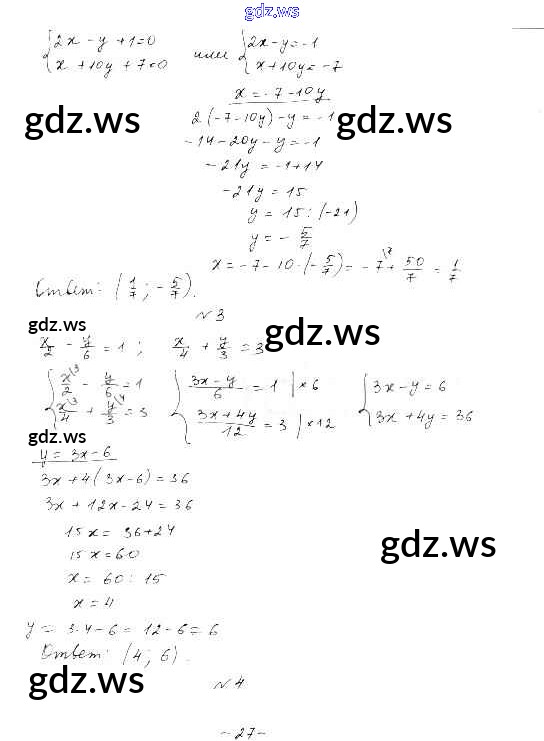 gdz.ws
{2x - y + 1 = 0 {x + 10y + 7 = 0 или {2x - y = -1 {x + 10y = -7
x = -7 - 10y
gdz.ws gdz.ws
2(-7-10y) - y = -1
-14 - 20y - y = -1
-21y = -1+14
-21y = 15
y = 15 : (-21)
y = - 5/7
x = -7 - 10·(-5/7) = -7 + 50/7 = 1/7
Ответ: (1/7; -5/7).
№3
gdz.ws gdz.ws
x/2 - y/6 = 1; x/4 + y/3 = 3
{x/2 \3 - y/6 = 1 {(3x-y)/6 = 1 | ×6 {3x - y = 6
{x/4 \3 + y/3 \4 = 3 {(3x+4y)/12 = 3 | ×12 {3x + 4y = 36
gdz.ws
y = 3x - 6
3x + 4(3x-6) = 36
3x + 12x - 24 = 36
15x = 36+24
gdz.ws
15x = 60
x = 60 : 15
x = 4
y = 3·4-6 = 12-6 = 6
Ответ: (4; 6).
gdz.ws
№4
-27-